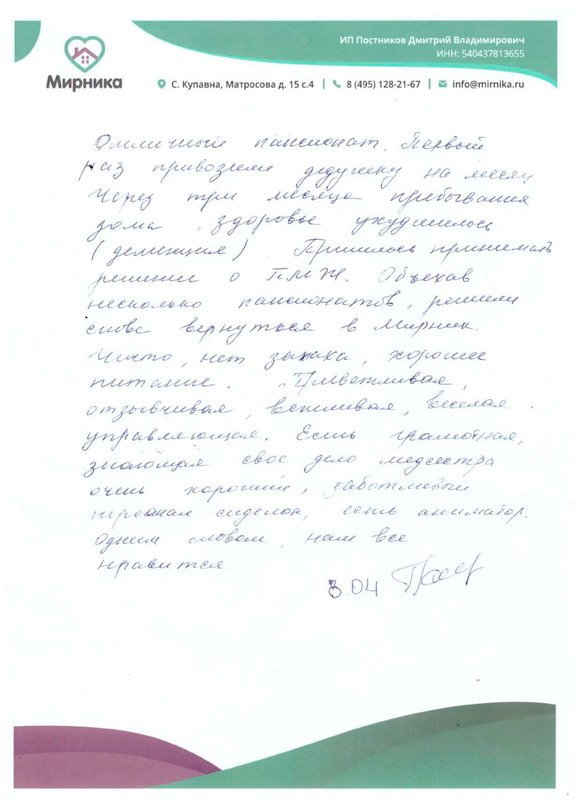 ИП Постников Дмитрий Владимирович
ИНН: 540437813655
Мирника
С. Купавна, Матросова д. 15 с.4 | 8 (495) 128-21-67 | info@mirnika.ru
Отличный пансионат. Первый
раз привозили дедушку на месяц
Через три месяца пребывания
дома, здоровье ухудшилось
(деменция). Пришлось принимать
решение о ПМЖ. Объехав
несколько пансионатов, решили
снова вернуться в Мирник.
Чисто, нет запаха, хорошее
питание. Приветливая,
отзывчивая, вежливая, веселая
управляющая. Есть грамотная,
знающая свое дело медсестра
очень хороший, заботливый
персонал сиделок, есть аниматор.
Одним словом, нам все
нравится.
3.04